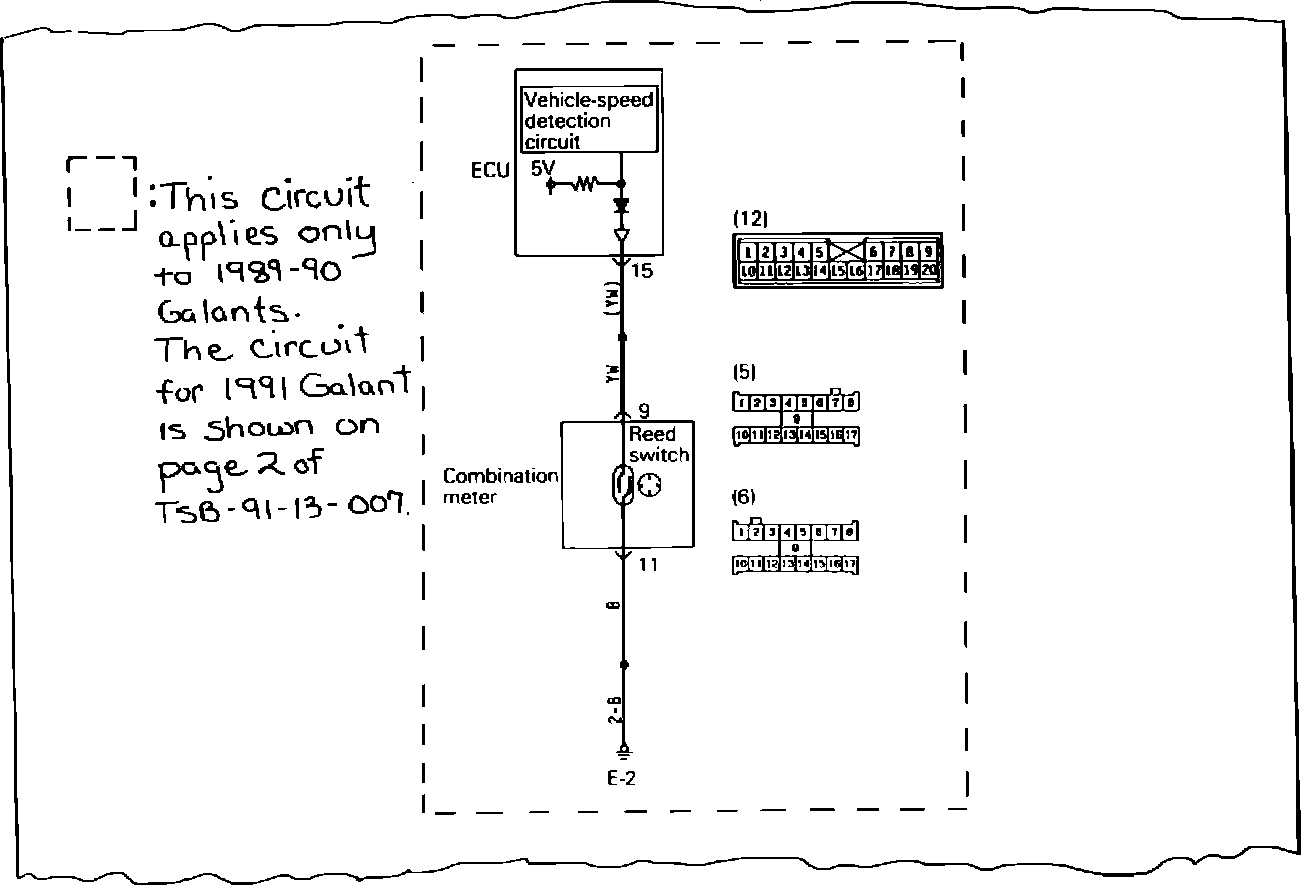 :This circuit
applies only
to 1989-90
Galants.
The circuit
for 1991 Galant
is shown on
page 2 of
TSB-91-13-007.
Vehicle-speed
detection
circuit
ECU
5V
15
(YW)
YW
9
Reed
switch
Combination
meter
11
B
2-B
E-2
(12)
1 2 3 4 5 6 7 8 9
10 11 12 13 14 15 16 17 18 19 20
(5)
1 2 3 4 5 6 7 8
9
10 11 12 13 14 15 16 17
(6)
1 2 3 4 5 6 7 8
9
10 11 12 13 14 15 16 17